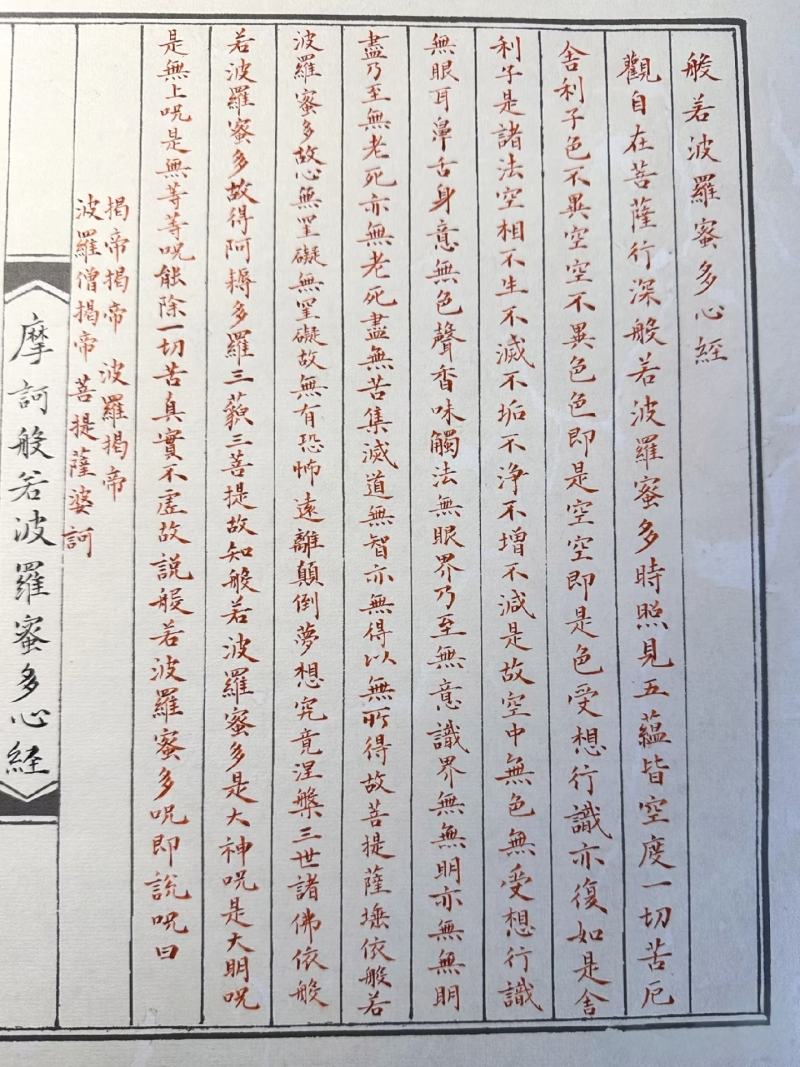 般若波羅蜜多心經
觀自在菩薩行深般若波羅蜜多時照見五蘊皆空度一切苦厄
舍利子色不異空空不異色色即是空空即是色受想行識亦復如是舍
利子是諸法空相不生不滅不垢不淨不增不減是故空中無色無受想行識
無眼耳鼻舌身意無色聲香味觸法無眼界乃至無意識界無無明亦無無明
盡乃至無老死亦無老死盡無苦集滅道無智亦無得以無所得故菩提薩埵依般若
波羅蜜多故心無罣礙無罣礙故無有恐怖遠離顛倒夢想究竟涅槃三世諸佛依般
若波羅蜜多故得阿耨多羅三藐三菩提故知般若波羅蜜多是大神呪是大明呪
是無上呪是無等等呪能除一切苦真實不虛故說般若波羅蜜多呪即說呪曰
揭帝揭帝 波羅揭帝
波羅僧揭帝 菩提薩婆訶
摩訶般若波羅蜜多心経